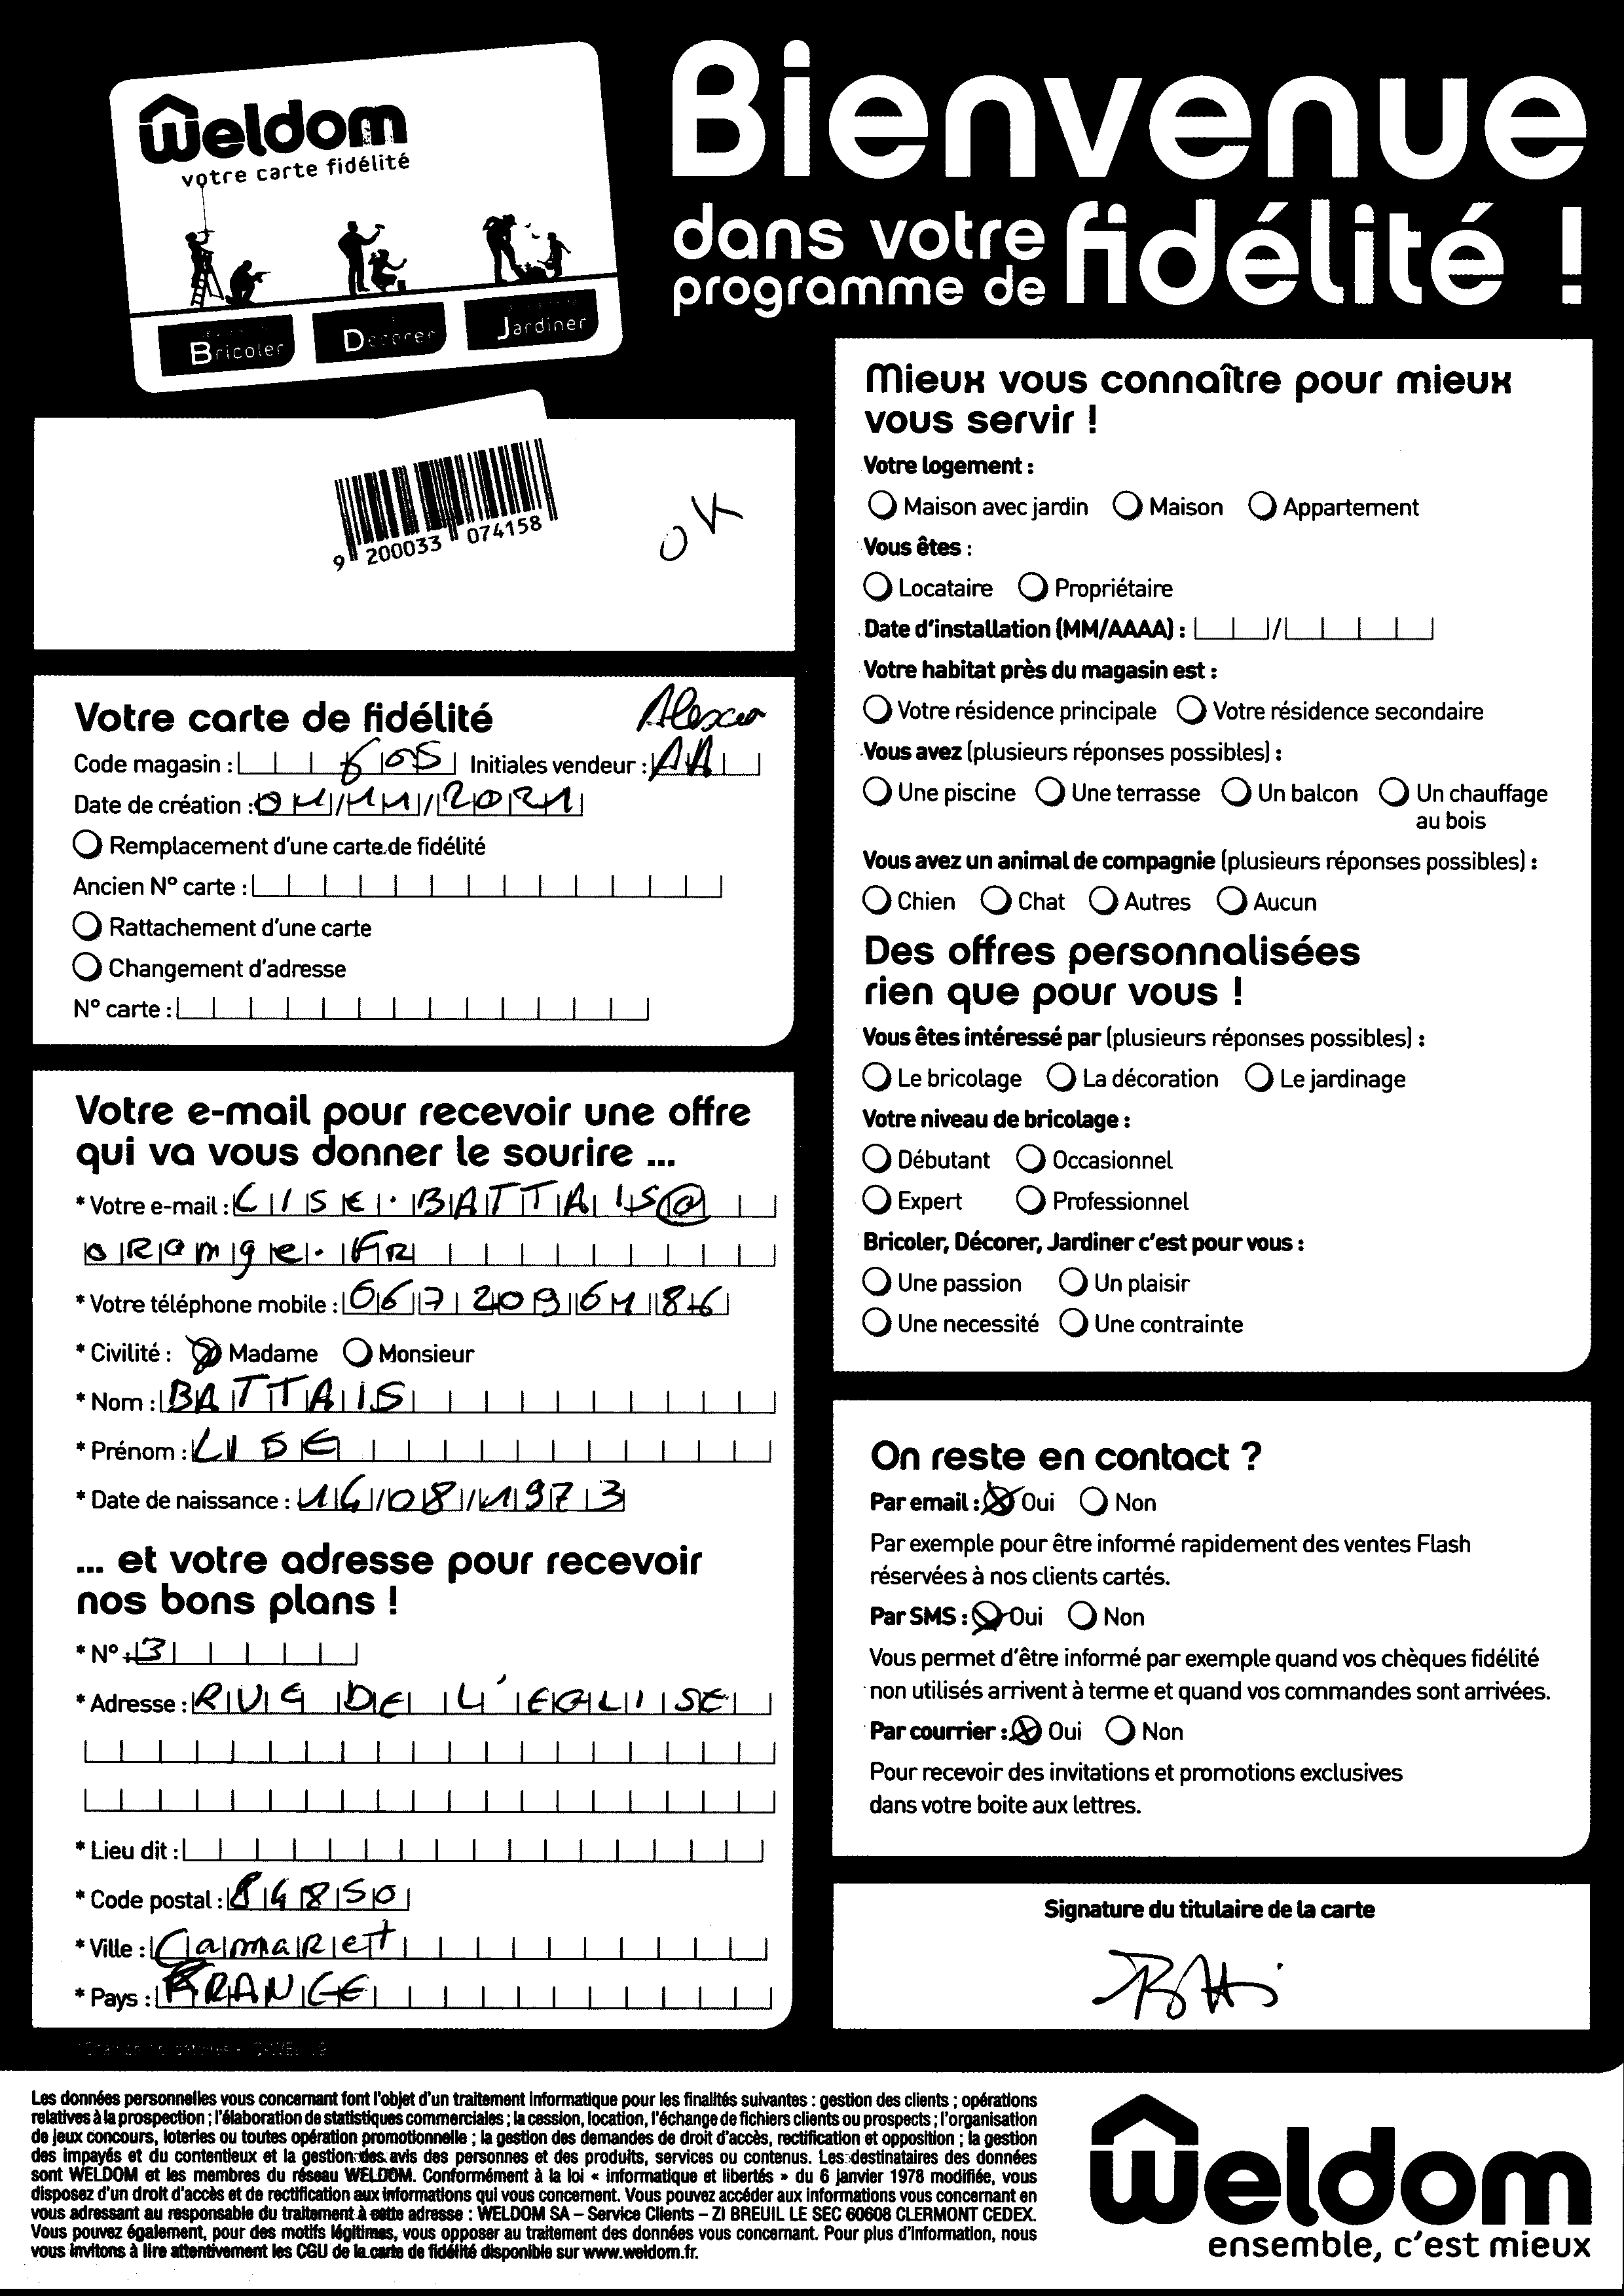 Weldom
votre carte fidélité
Bricoler
Décorer
Jardiner
Bienvenue
dans votre
programme de fidélité !
9 200033 074158
OK
Votre carte de fidélité
Alexia
Code magasin : 605 Initiales vendeur : AA
Date de création : 01/11/2021
Remplacement d'une carte de fidélité
Ancien N° carte :
Rattachement d'une carte
Changement d'adresse
N° carte :
Votre e-mail pour recevoir une offre
qui va vous donner le sourire ...
* Votre e-mail : LISE.BATTAIS@
orange.fr
* Votre téléphone mobile : 0672096186
* Civilité : Madame Monsieur
* Nom : BATTAIS
* Prénom : LISE
* Date de naissance : 14/08/1973
... et votre adresse pour recevoir
nos bons plans !
* N° : 3
* Adresse : RUE DE L'EGLISE
* Lieu dit :
* Code postal : 84850
* Ville : Camaret
* Pays : FRANCE
Mieux vous connaître pour mieux
vous servir !
Votre logement :
Maison avec jardin Maison Appartement
Vous êtes :
Locataire Propriétaire
Date d'installation (MM/AAAA) : /
Votre habitat près du magasin est :
Votre résidence principale Votre résidence secondaire
Vous avez (plusieurs réponses possibles) :
Une piscine Une terrasse Un balcon Un chauffage
au bois
Vous avez un animal de compagnie (plusieurs réponses possibles) :
Chien Chat Autres Aucun
Des offres personnalisées
rien que pour vous !
Vous êtes intéressé par (plusieurs réponses possibles) :
Le bricolage La décoration Le jardinage
Votre niveau de bricolage :
Débutant Occasionnel
Expert Professionnel
Bricoler, Décorer, Jardiner c'est pour vous :
Une passion Un plaisir
Une necessité Une contrainte
On reste en contact ?
Par email : Oui Non
Par exemple pour être informé rapidement des ventes Flash
réservées à nos clients cartés.
Par SMS : Oui Non
Vous permet d'être informé par exemple quand vos chèques fidélité
non utilisés arrivent à terme et quand vos commandes sont arrivées.
Par courrier : Oui Non
Pour recevoir des invitations et promotions exclusives
dans votre boite aux lettres.
Signature du titulaire de la carte
Les données personnelles vous concernant font l'objet d'un traitement informatique pour les finalités suivantes : gestion des clients ; opérations
relatives à la prospection ; l'élaboration de statistiques commerciales ; la cession, location, l'échange de fichiers clients ou prospects ; l'organisation
de jeux concours, loteries ou toutes opération promotionnelle ; la gestion des demandes de droit d'accès, rectification et opposition ; la gestion
des impayés et du contentieux et la gestion des avis des personnes et des produits, services ou contenus. Les destinataires des données
sont WELDOM et les membres du réseau WELDOM. Conformément à la loi « informatique et libertés » du 6 janvier 1978 modifiée, vous
disposez d'un droit d'accès et de rectification aux informations qui vous concernent. Vous pouvez accéder aux informations vous concernant en
vous adressant au responsable du traitement à cette adresse : WELDOM SA – Service Clients – ZI BREUIL LE SEC 60608 CLERMONT CEDEX.
Vous pouvez également, pour des motifs légitimes, vous opposer au traitement des données vous concernant. Pour plus d'information, nous
vous invitons à lire attentivement les CGU de la carte de fidélité disponible sur www.weldom.fr.
Weldom
ensemble, c'est mieux